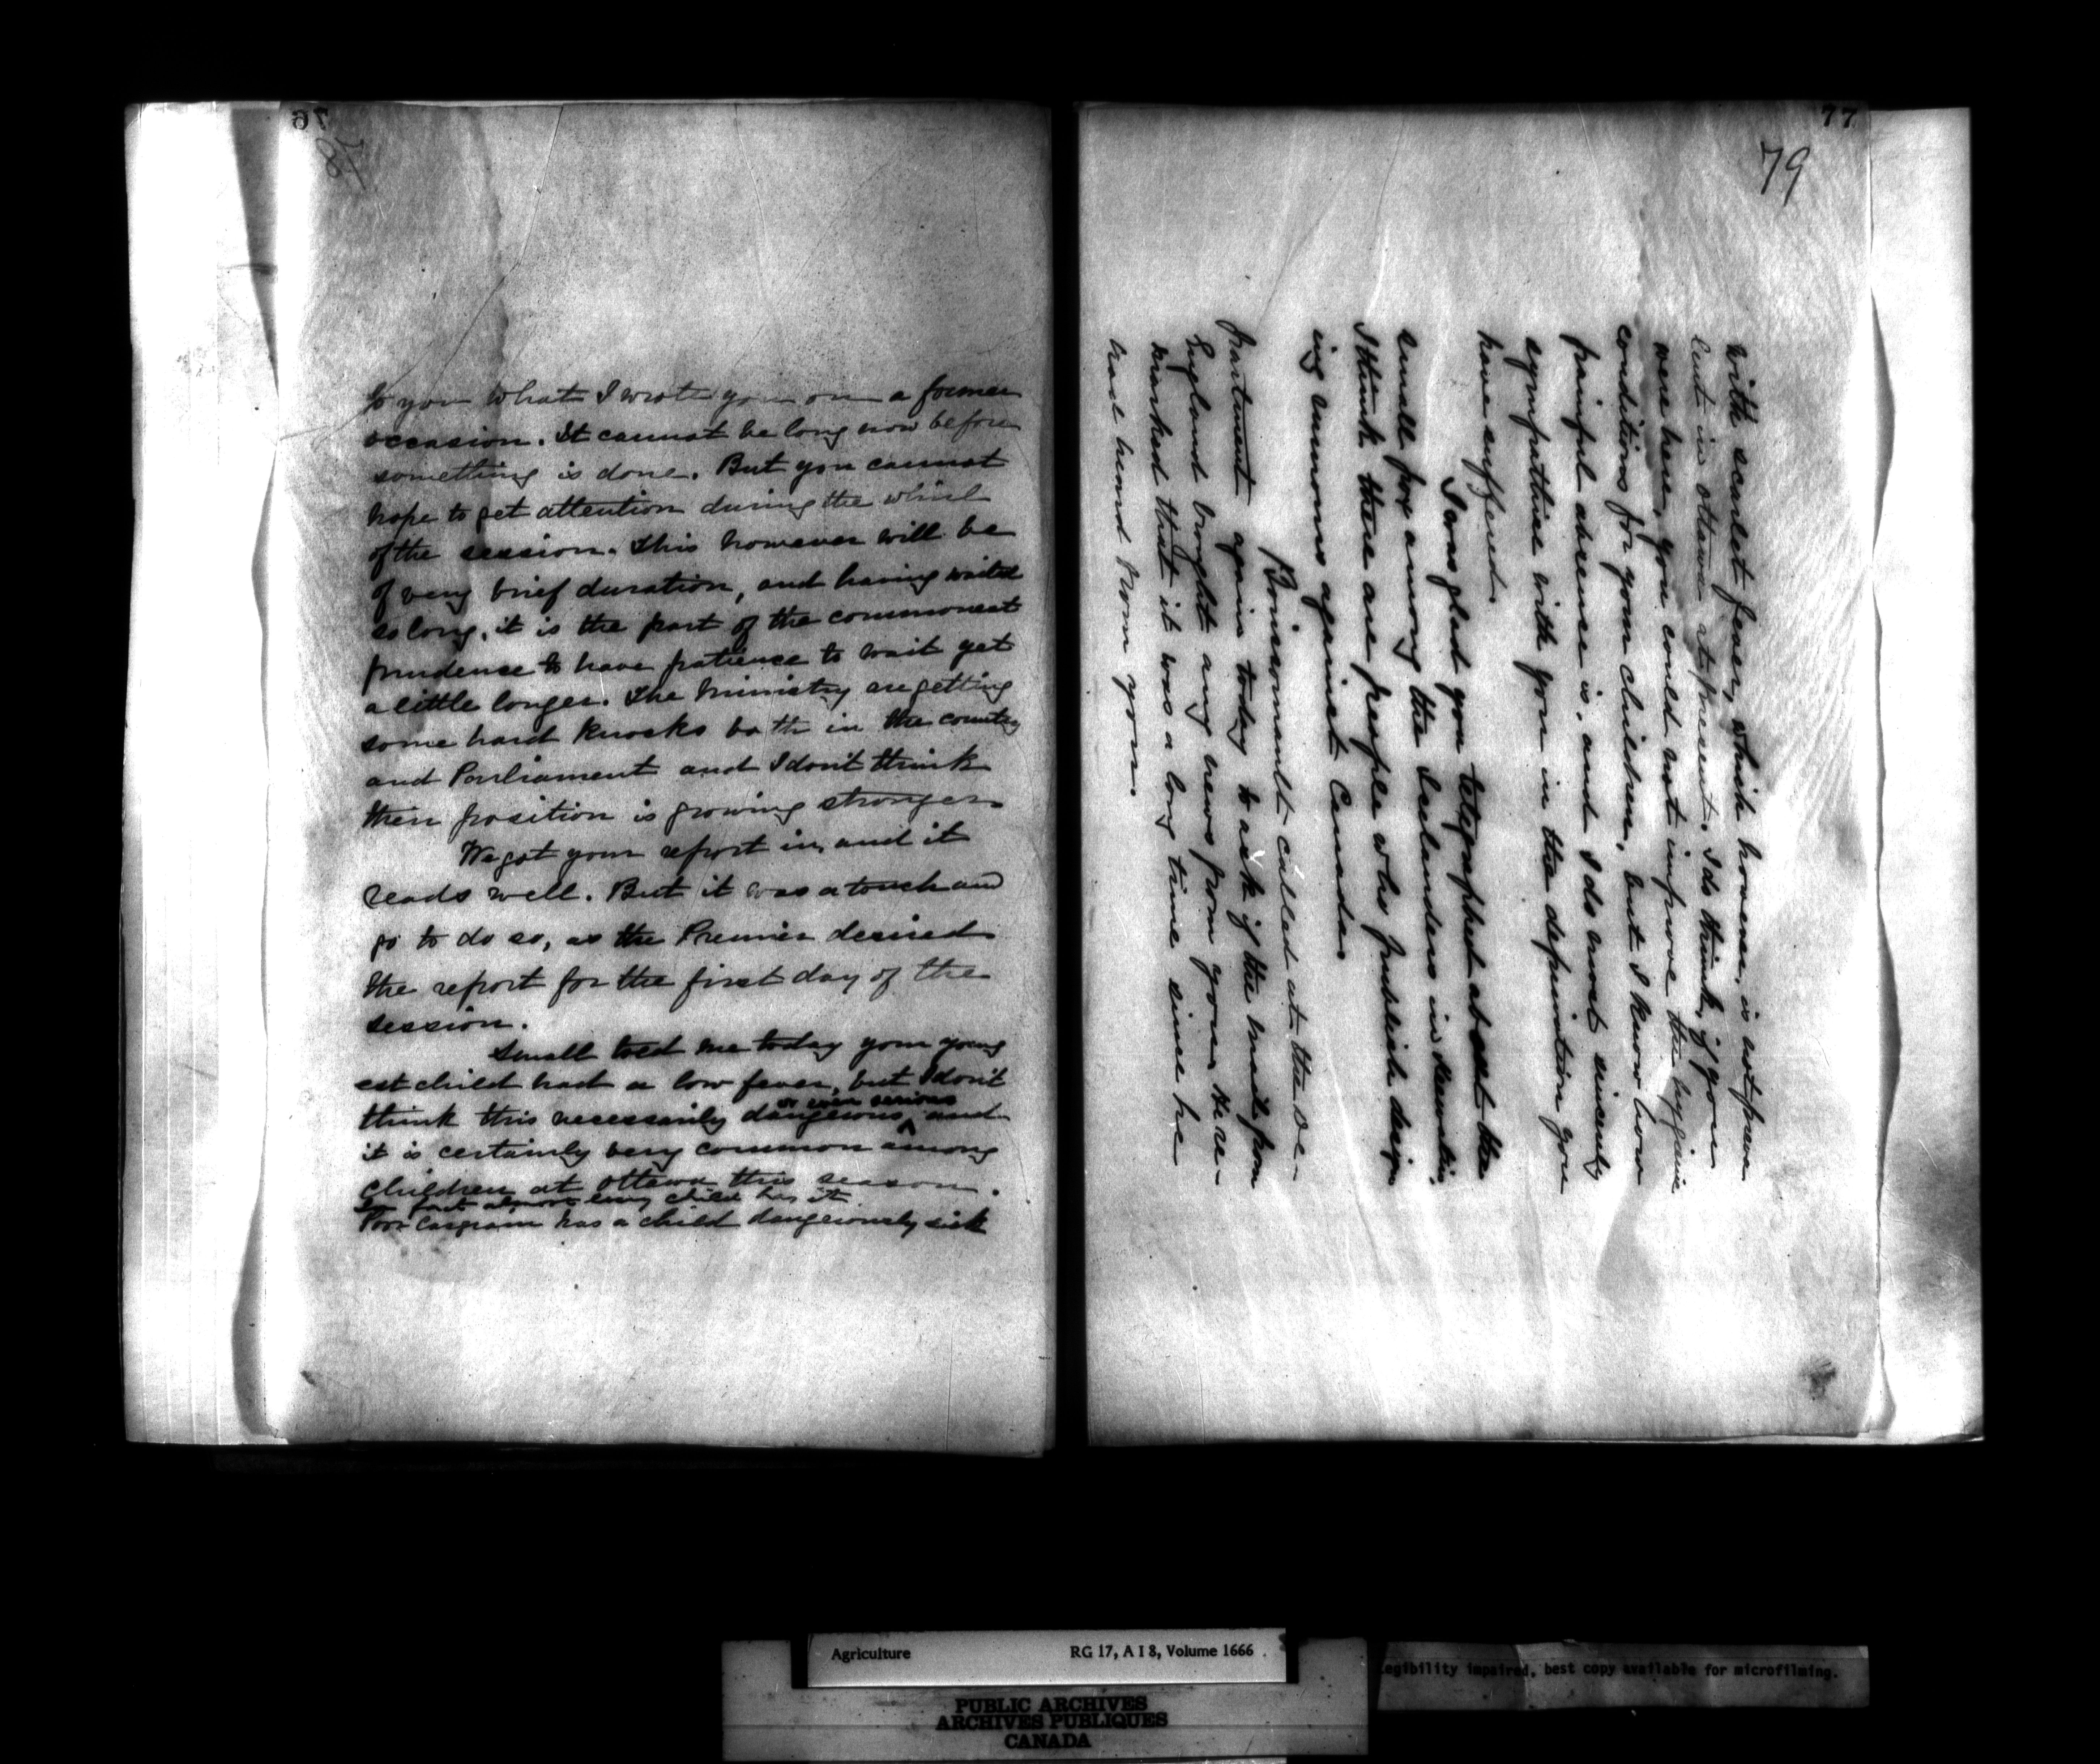 76
78
to you what I wrote you on a former
occasion. It cannot be long now before
something is done. But you cannot
hope to get attention during the whirl
of the session. This however will be
of very brief duration, and having waited
so long, it is the part of the commonest
prudence to have patience to wait yet
a little longer. The Ministry are getting
some hard knocks both in the country
and Parliament and I don't think
their position is growing stronger.
We got your report in, and it
reads well. But it was a touch and
go to do so, as the Premier desired
the report for the first day of the
session.
Small told me today your young
est child had a low fever, but I don't
think this necessarily dangerous, or even serious and
it is certainly very common among
children at Ottawa this season.
In fact almost every child has it
Poor Casgrain has a child dangerously sick
77
79
with scarlet fever, which however, is not prev
lent in Ottawa at present. I do think, if you
were here, you could not improve the hygienic
conditions for your children, but I know how
painful absence is, and I do most sincerely
sympathise with you in the deprivation you
have suffered.
I was glad you telegraphed about the
small pox among the Icelanders in Keewatin.
I think there are people who publish design
ing rumours against Canada.
Boissonault called at the De-
partment again today to ask if the mail from
England brought any news from you. He re-
marked that it was a long time since he
had heard from you.
Agriculture RG 17, A I 8, Volume 1666
PUBLIC ARCHIVES
ARCHIVES PUBLIQUES
CANADA
Legibility impaired, best copy available for microfilming.